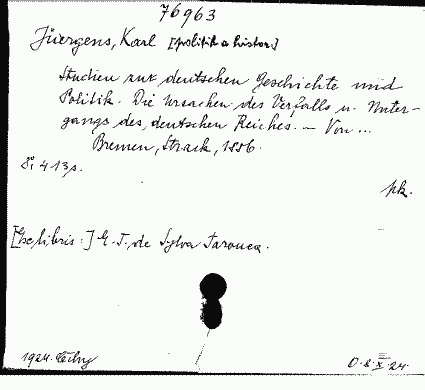 76963
Jürgens, Karl [politik a histor.]
Studien zur deutschen Geschichte und
Politik. Die Ursachen des Verfalls u. Unter-
gangs des deutschen Reiches. — Von ...
Bremen, Strack, 1886.
8°, 413 s.
pk.
[Ex libris:] E. T. de Sylva Tarouca.
1924. Čechy
D. 8. X. 24.